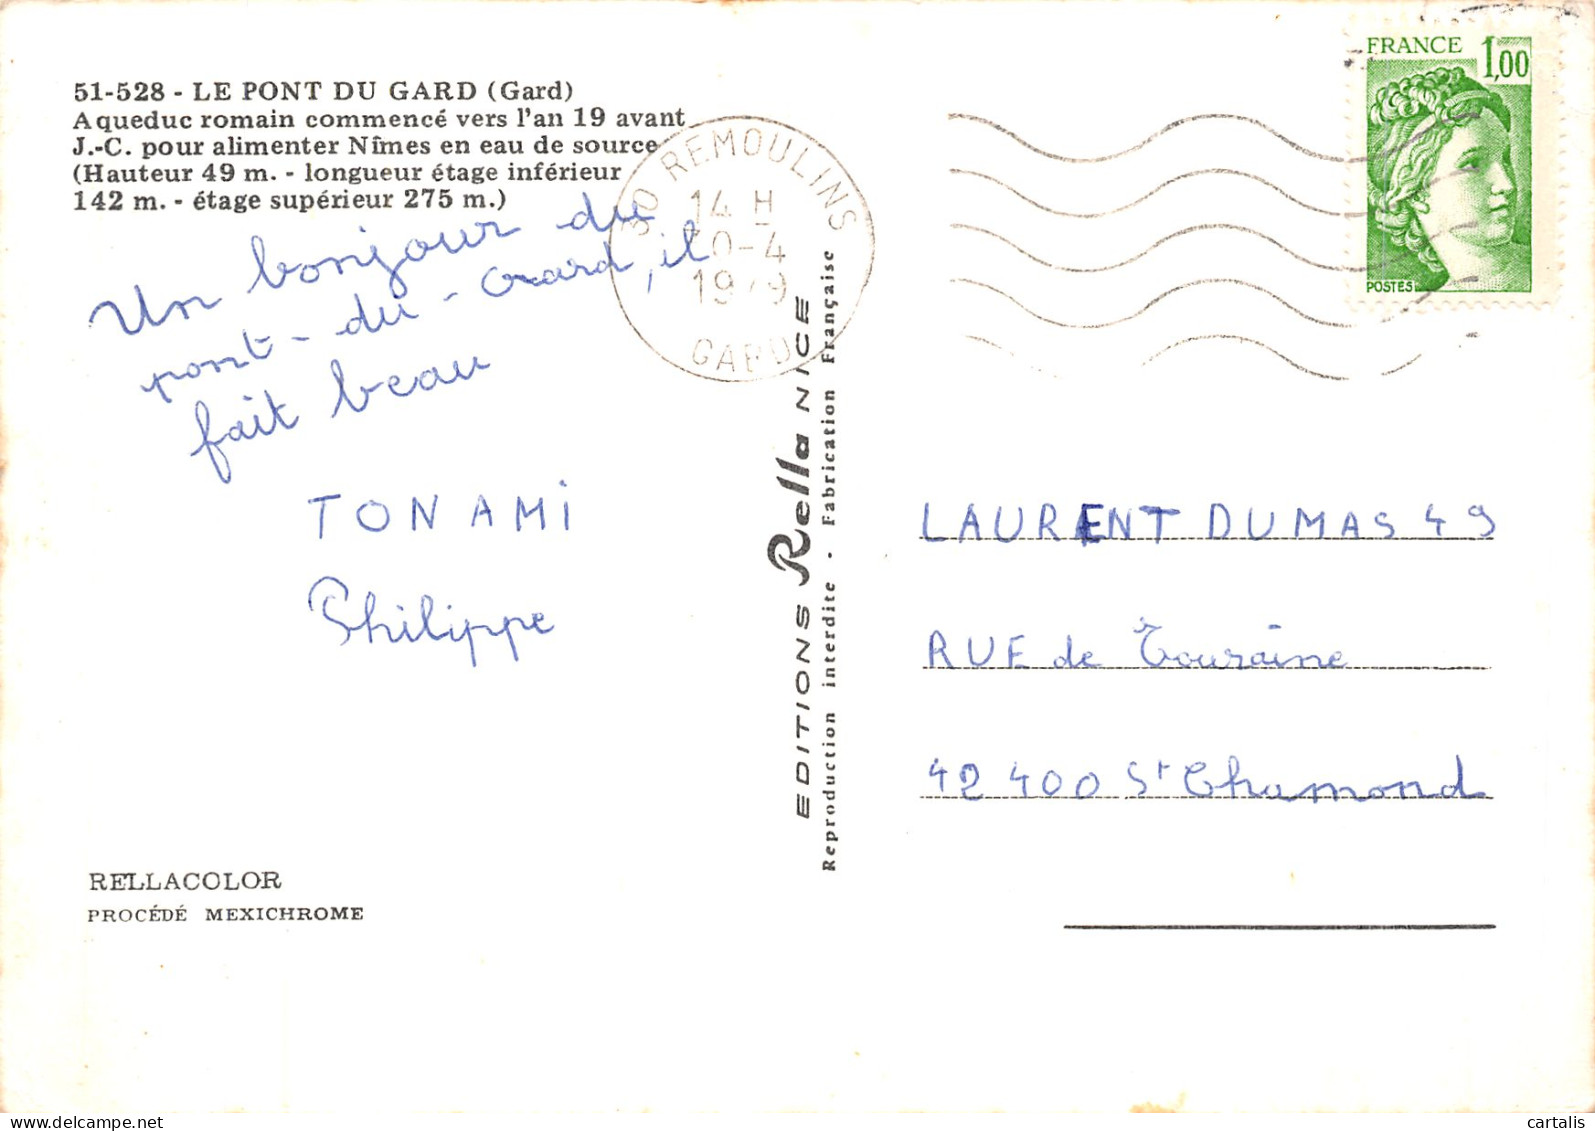 51-528 - LE PONT DU GARD (Gard)
Aqueduc romain commencé vers l'an 19 avant
J.-C. pour alimenter Nîmes en eau de source
(Hauteur 49 m. - longueur étage inférieur
142 m. - étage supérieur 275 m.)
Un bonjour du
pont-du-Gard, il
fait beau
TON AMi
Philippe
RELLACOLOR
PROCÉDÉ MEXICHROME
30 REMOULINS
14 H
30-4
1979
GARD
EDITIONS Rella NICE
Reproduction interdite · Fabrication Française
FRANCE 1,00
POSTES
LAURENT DUMAS 49
RUE de Touraine
42400 St Chamond
delcampe.net
cartalis